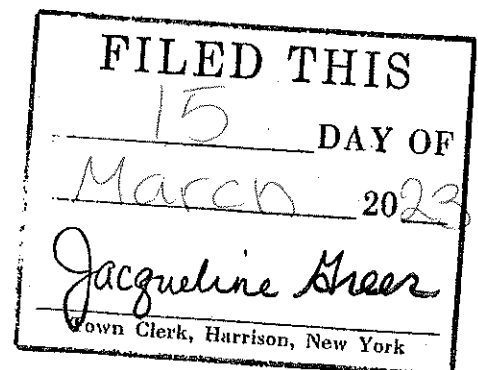 FILED THIS
15 DAY OF
March 2023
Jacqueline Greer
Town Clerk, Harrison, New York